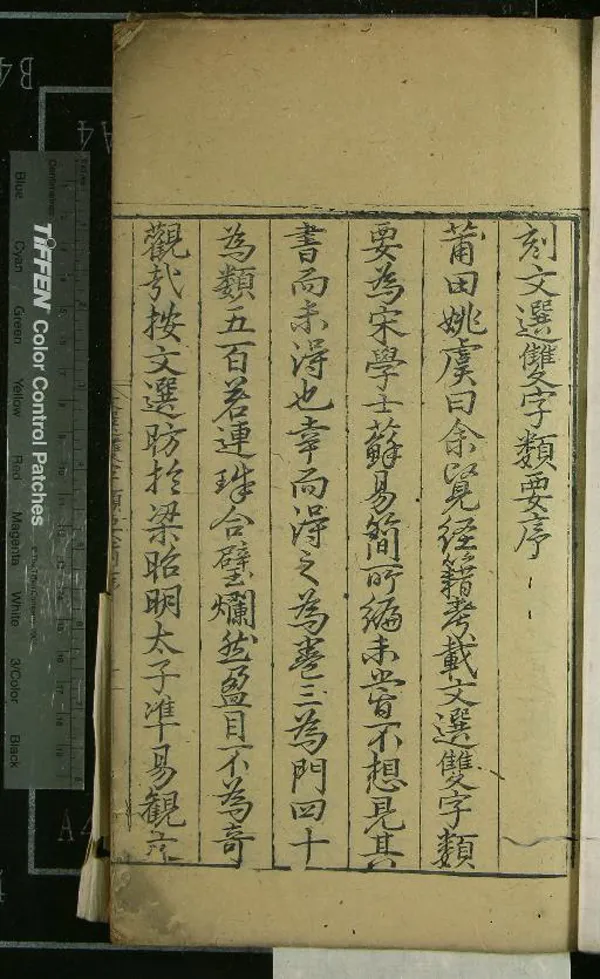 刻文選雙字類要序
莆田姚虞曰余覽經籍考載文選雙字類
要為宋學士蘇易簡所編未嘗不想見其
書而未得也幸而得之為卷三為門四十
為類五百若連珠合璧爛然盈目不為奇
觀哉按文選昉於梁昭明太子準易觀
TIFFEN Color Control Patches
Blue
Cyan
Green
Yellow
Red
Magenta
White
3/Color
Black
B4
A4
A4